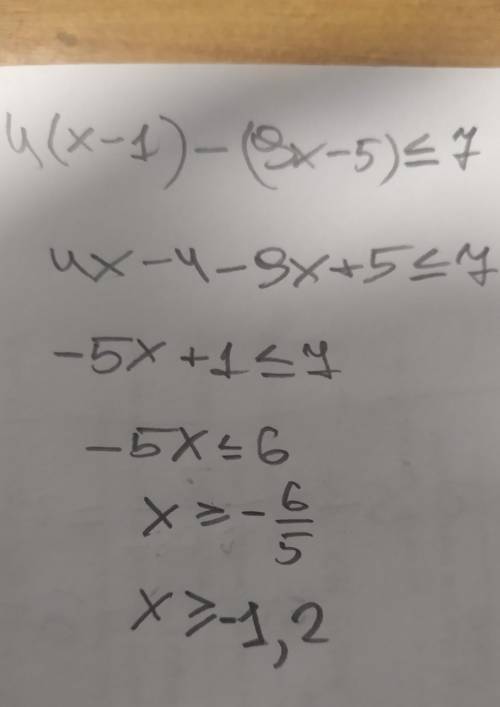 4(x-1)-(9x-5)≤7
4x-4-9x+5≤7
-5x+1≤7
-5x≤6
x≥-6/5
x≥-1,2